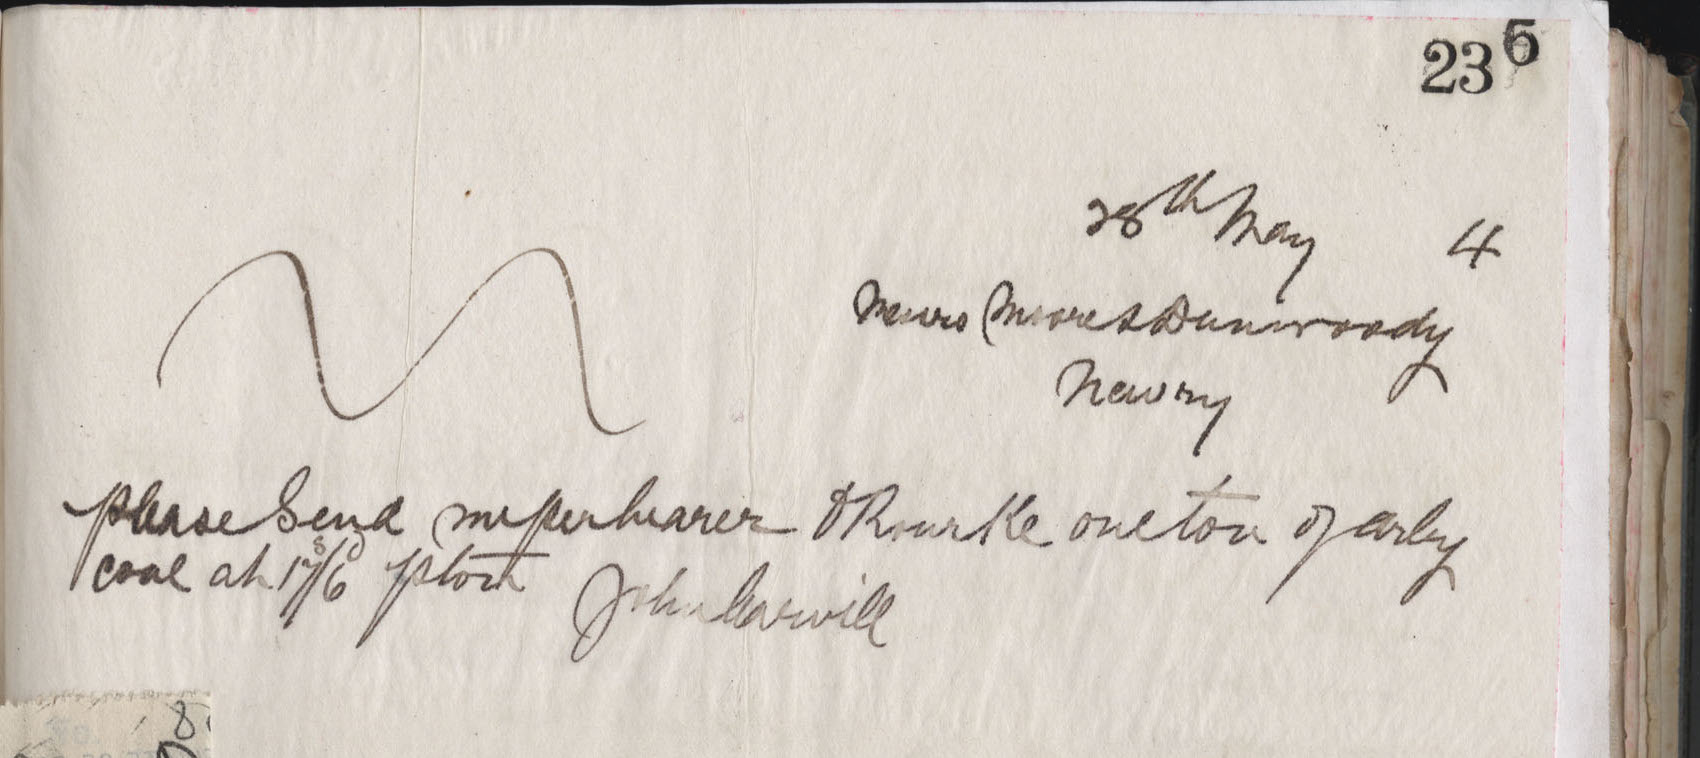 235
28th May 4
Messrs Moore & Dunwoody
Newry
please Send me per bearer O Rourke one ton of arley
coal at 17s/6d p ton
John Carvill
8